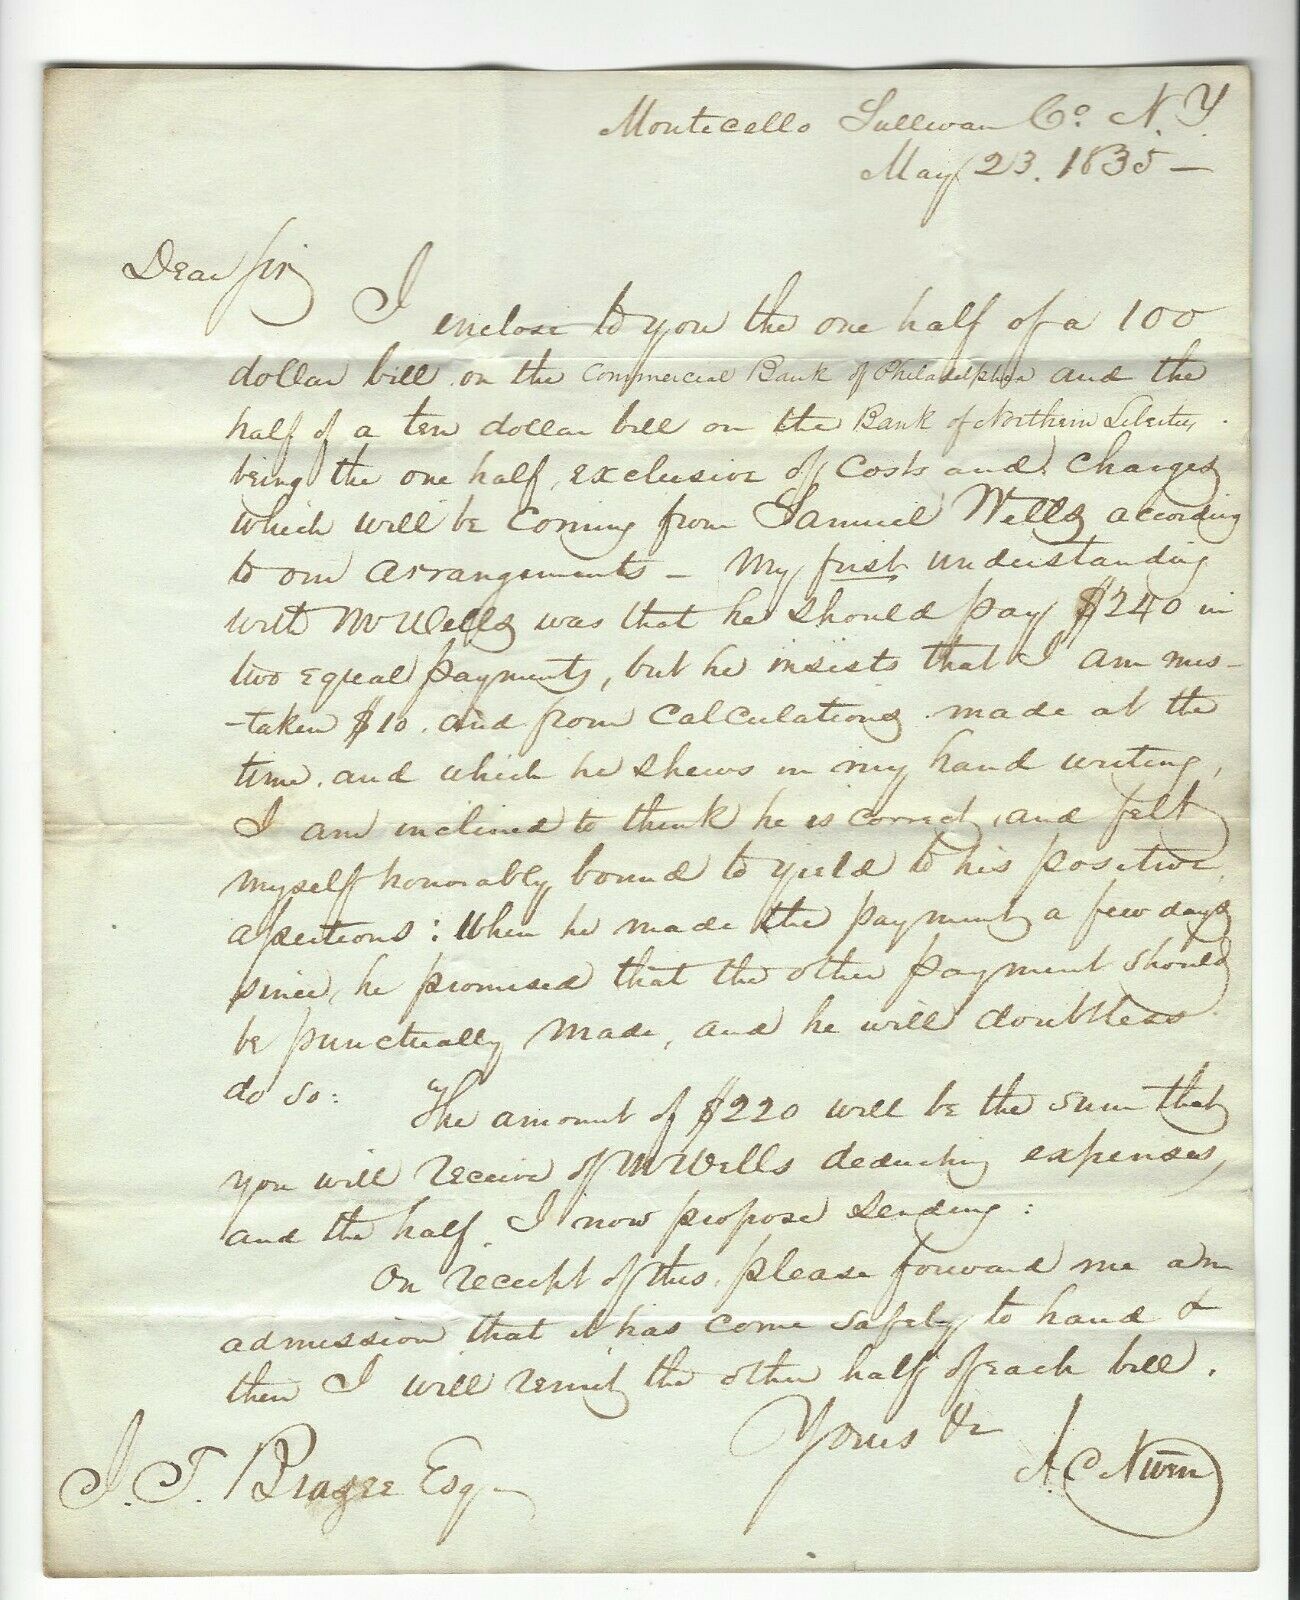 Monticello Sullivan Co. N.Y.
May 23. 1835 —
Dear Sir
I enclose to you the one half of a 100
dollar bill on the Commercial Bank of Philadelphia and the
half of a ten dollar bill on the Bank of Northern Liberties,
being the one half, exclusive of costs and charges
which will be coming from Samuel Wells according
to our arrangements — My first understanding
with Mr Wells was that he should pay $240 in
two equal payments, but he insists that I am mis-
-taken $10. and from calculations made at the
time. and which he shews in my hand writing,
I am inclined to think he is correct, and felt
myself honorably bound to yield to his positive
assertions: When he made the payment a few days
since, he promised that the other payment should
be punctually made, and he will doubtless
do so: The amount of $220 will be the sum that
you will receive of Mr Wells deducting expenses,
and the half. I now propose sending:
On receipt of this, please forward me an
admission that it has come safely to hand &
then I will remit the other half of each bill.
Yours &c
A. C. Niven
J. T. Brazee Esq